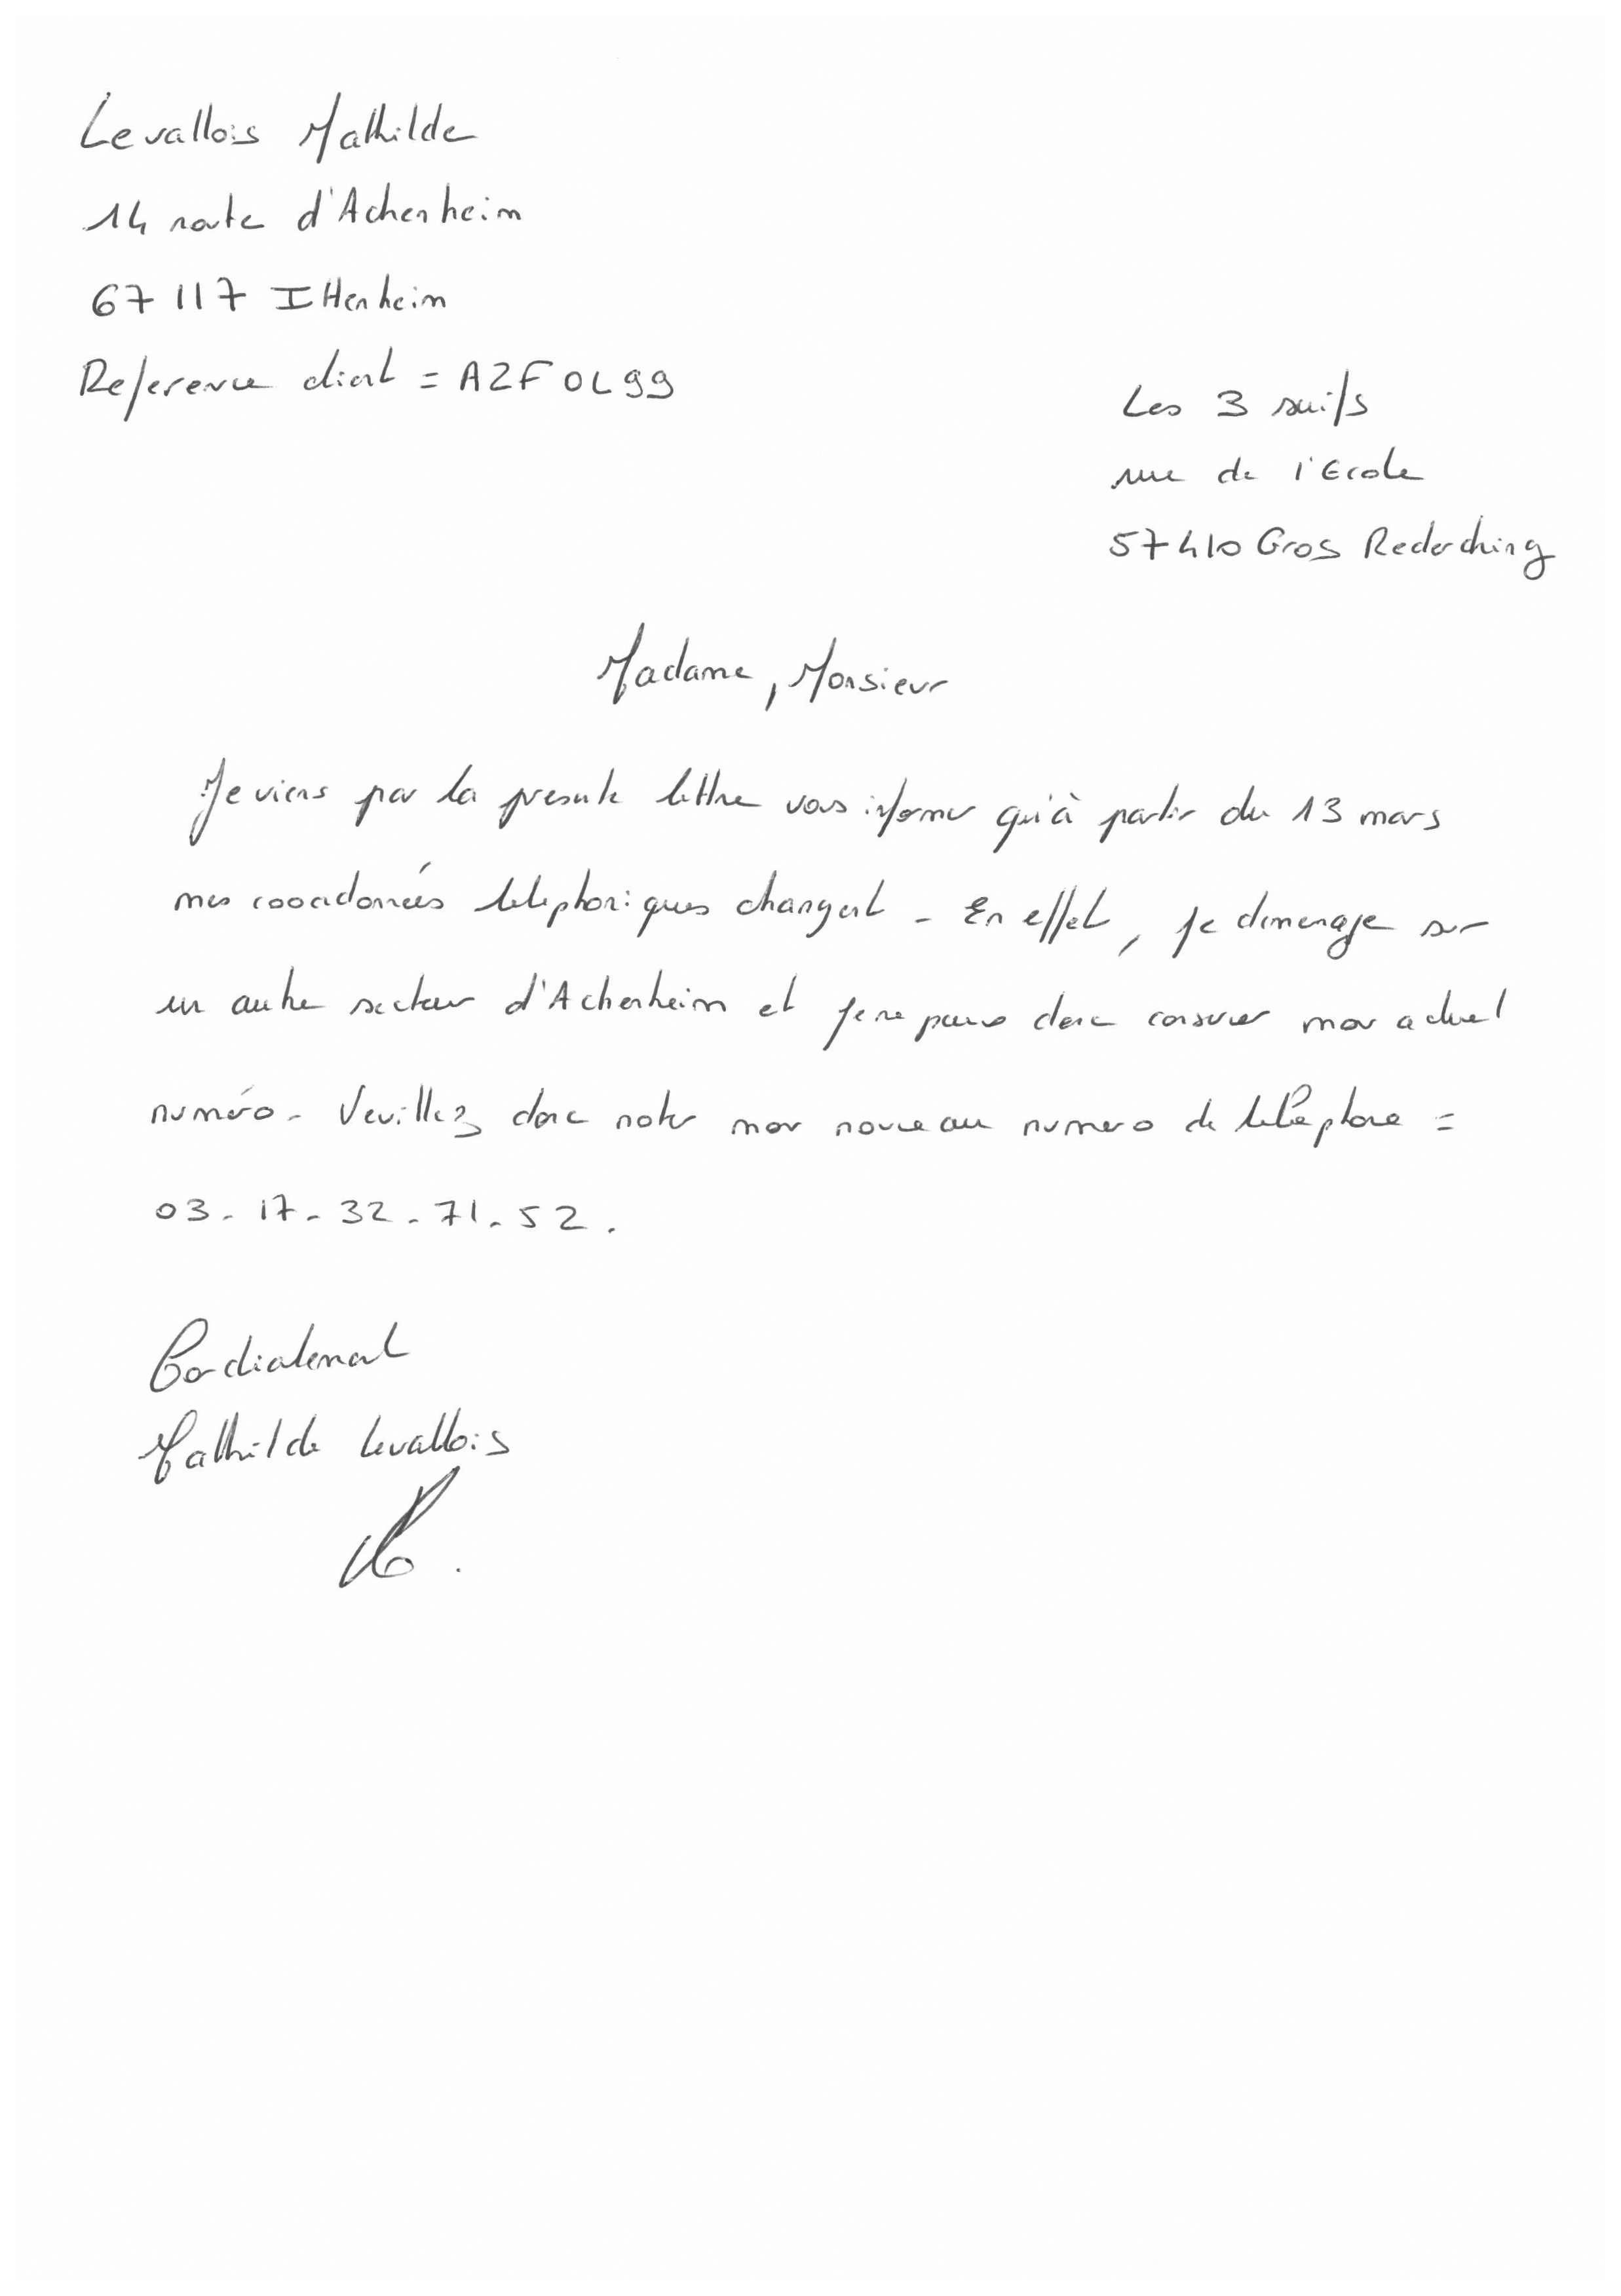 Levallois Mathilde
14 route d'Achenheim
67117 Ittenheim
Reference client = AZFOL99
Les 3 suifs
rue de l'Ecole
57410 Gros Rederching
Madame, Monsieur
Je viens par la presente lettre vous informer qu'à partir du 13 mars
mes coordonnées telephoniques changent - En effet, je demenage sur
un autre secteur d'Achenheim et je ne peux donc conserver mon actuel
numéro - Veuillez donc noter mon nouveau numero de telephone =
03-17-32-71-52.
Cordialement
Mathilde Levallois